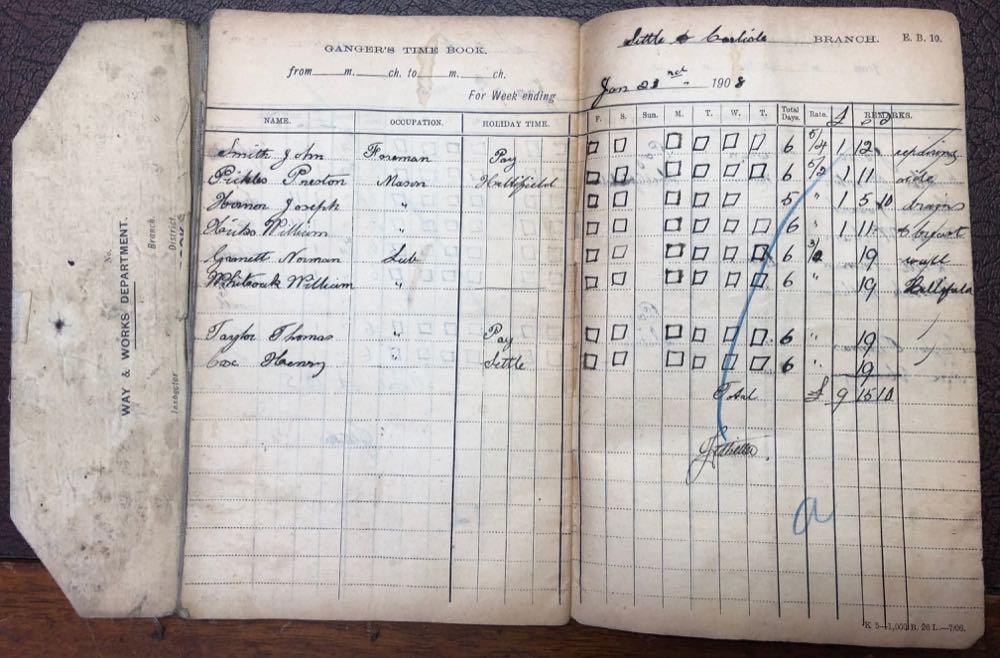 WAY & WORKS DEPARTMENT.
No.
Branch
District
Inspector
GANGER'S TIME BOOK.
from m. ch. to m. ch.
For Week ending
Settle & Carlisle BRANCH. E. B. 10.
Jan 23rd 1908
NAME. OCCUPATION. HOLIDAY TIME. F. S. Sun. M. T. W. T. Total Days. Rate. £ REMARKS.
Smith John Foreman Pay 6 5/4 1 12 repairing
Pickles Preston Mason Hellifield 6 5/2 1 11 side
Hornor Joseph " 5 " 1 5 10 drains
William " 6 " 1 11 & breast
Garnett Norman Lab 6 3/2 19 wall
Whitoak William " 6 " 19 Hellifield
Taylor Thomas " Pay 6 " 19
Cox Henry " Settle 6 " 19
Total £ 9 15 10
a
K 5—1,000 B. 26 L.—7/06.